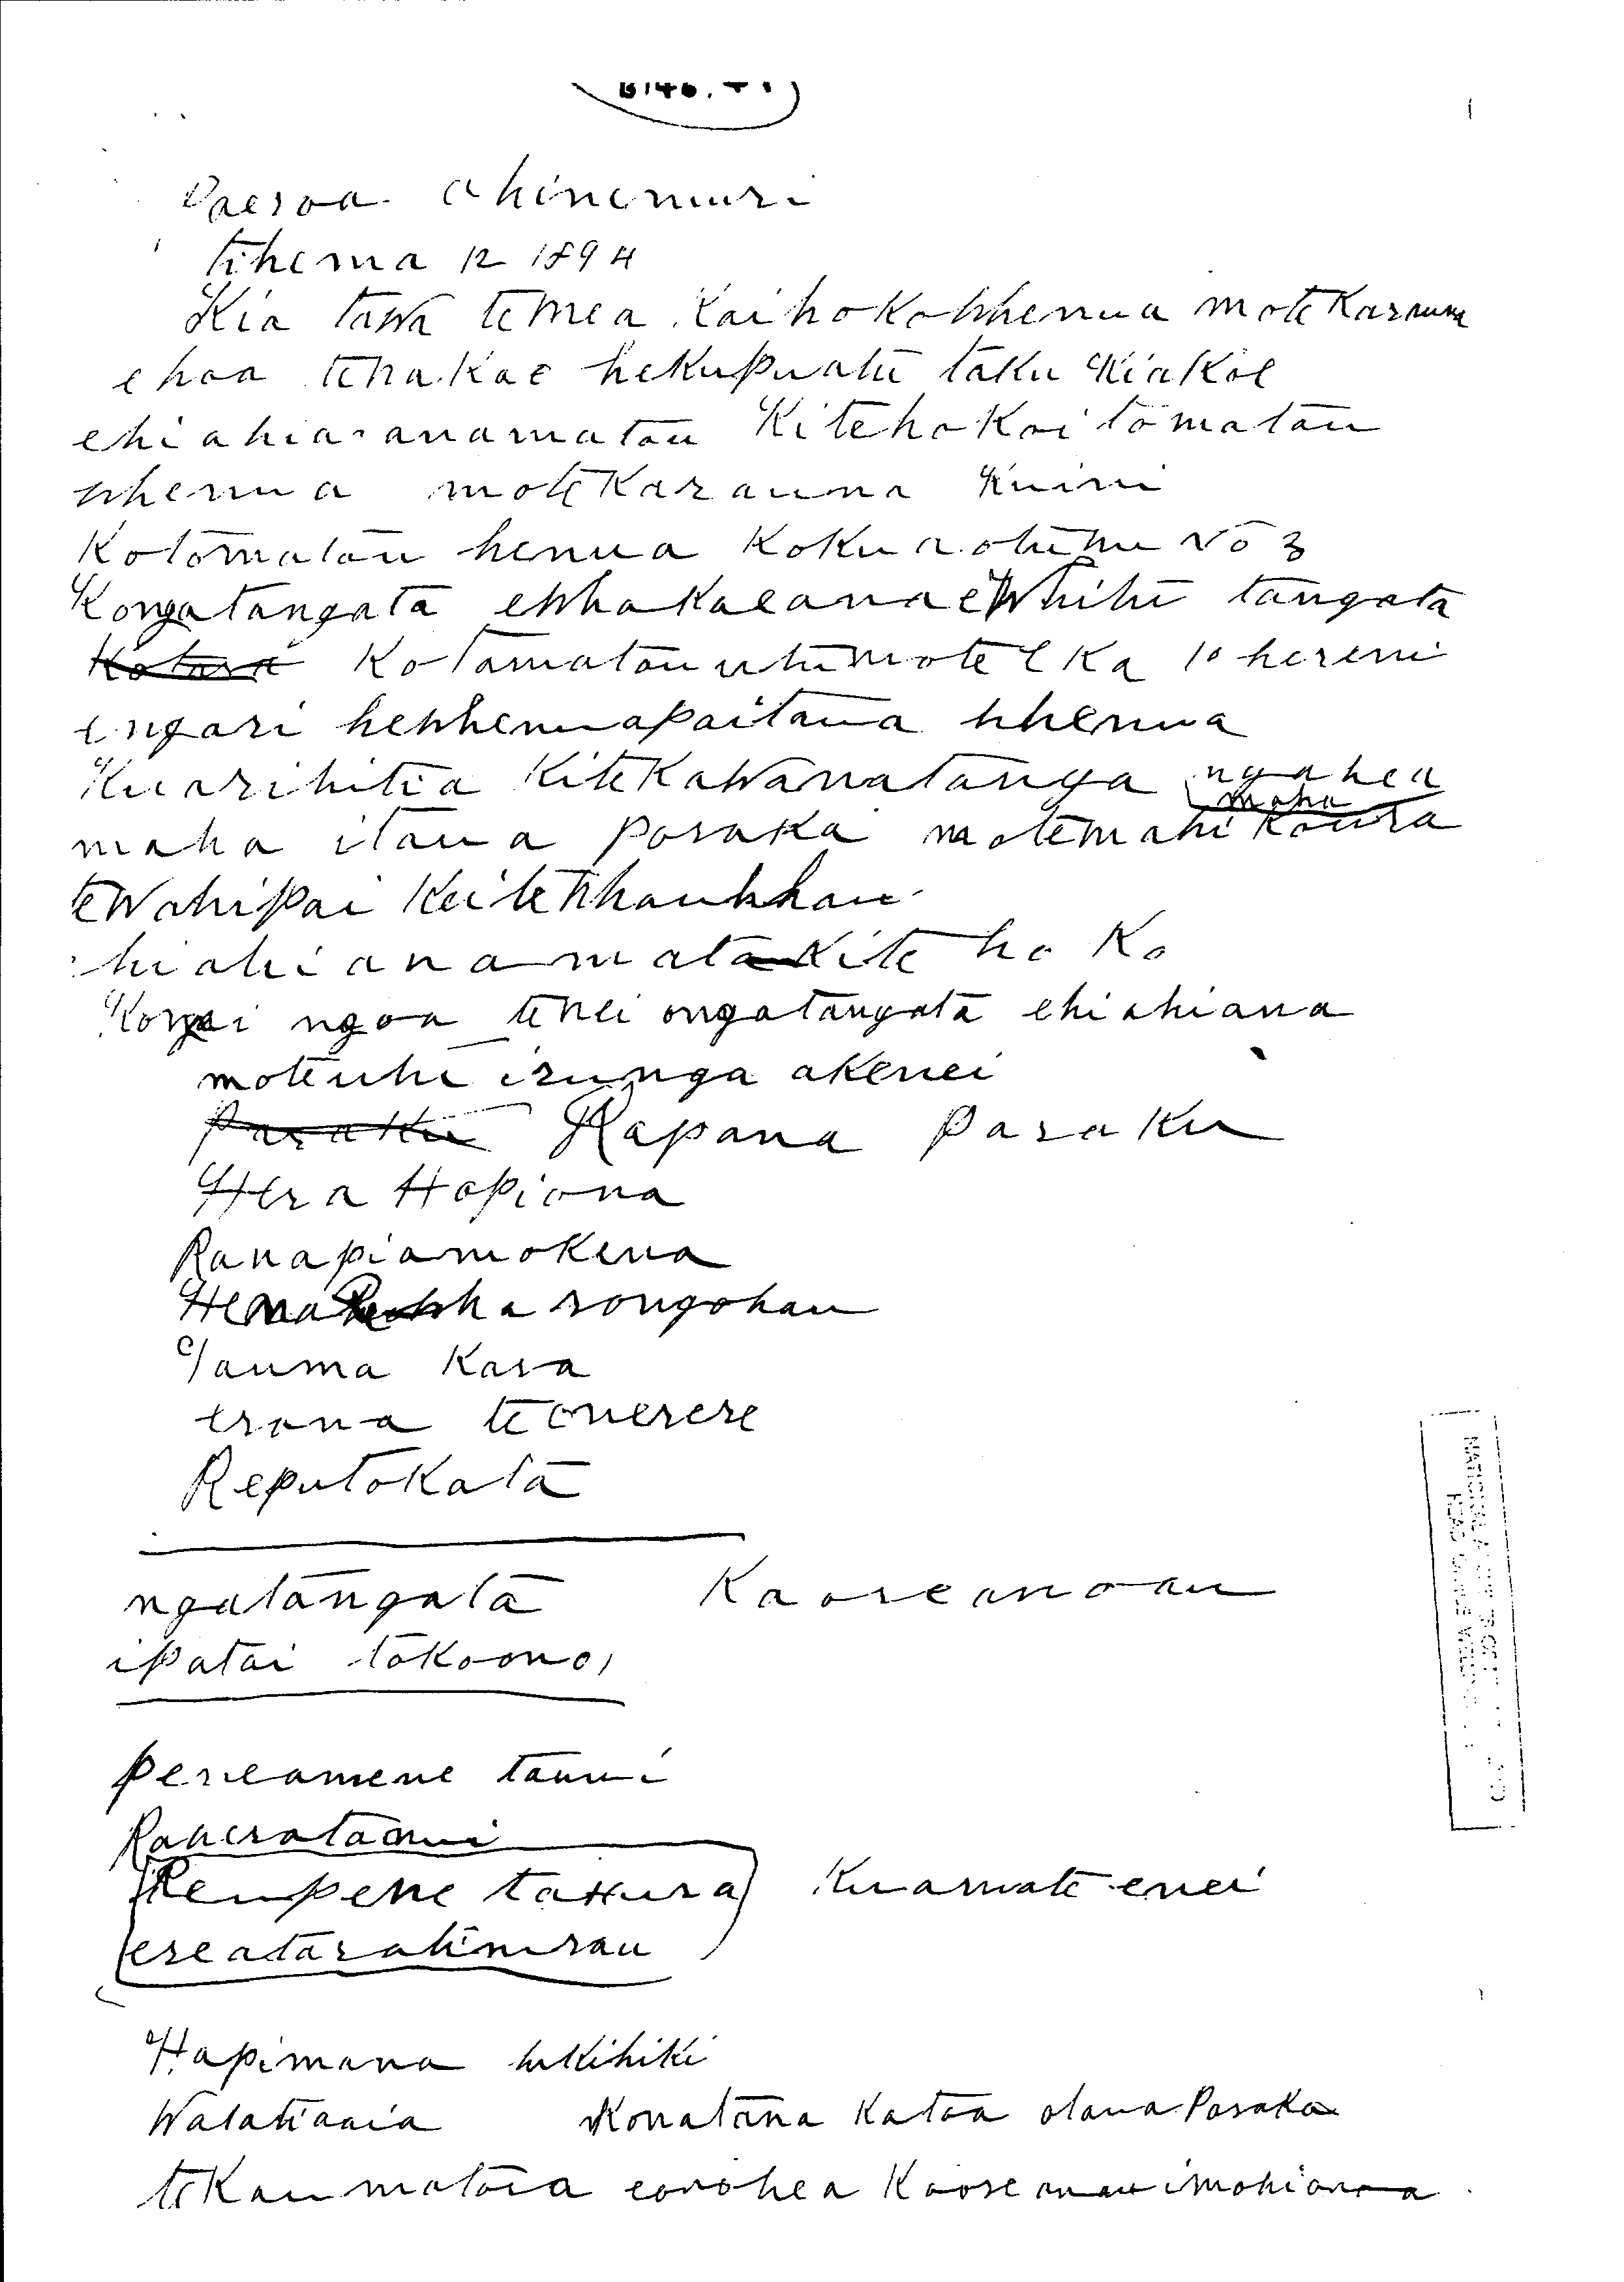 Paeroa Ohinemuri
tihema 12 1894
Kia tawa te mea Kaihoko whenua mote Karauna
ehoa tenakoe hekupuatu taku Kiakoe
ehiahia ana matau Kitehoko i tomatau
whenua mote Karauna Kuini
Kotomatau henua Kokuaotunu No 3
Kongatangata ewhakaeana ewhitu tangata
Kotara Kotamatau utu mote eka 10 hereni
engari hewhenuapaitaua whenua
Kuarihitia KiteKawanatanga ngahea
maha
maha itaua poraka motemahi Koura
teWahipai KeiteWhauwhau
hiahiana mata Kite hoko
Kongai ngoa tenei ongatangata ehiahiana
moteutu irunga akenei
Paraku Rapana Paraku
Hera Hopiona
Ranapia mokena
Hema rongohau
Tauma Kara
erana teonerere
Reputokata
ngatangata Kaoreanoau
ipatai tokoono
peneamene tanui
Raheratanui
Reupene taHura Kuamate enei
ereataratinirau
Hapimana hikihiki
Watatiaaia Konatana Katoa otaua Poraka
teKaumatoia eorohea Kaore anau imohio